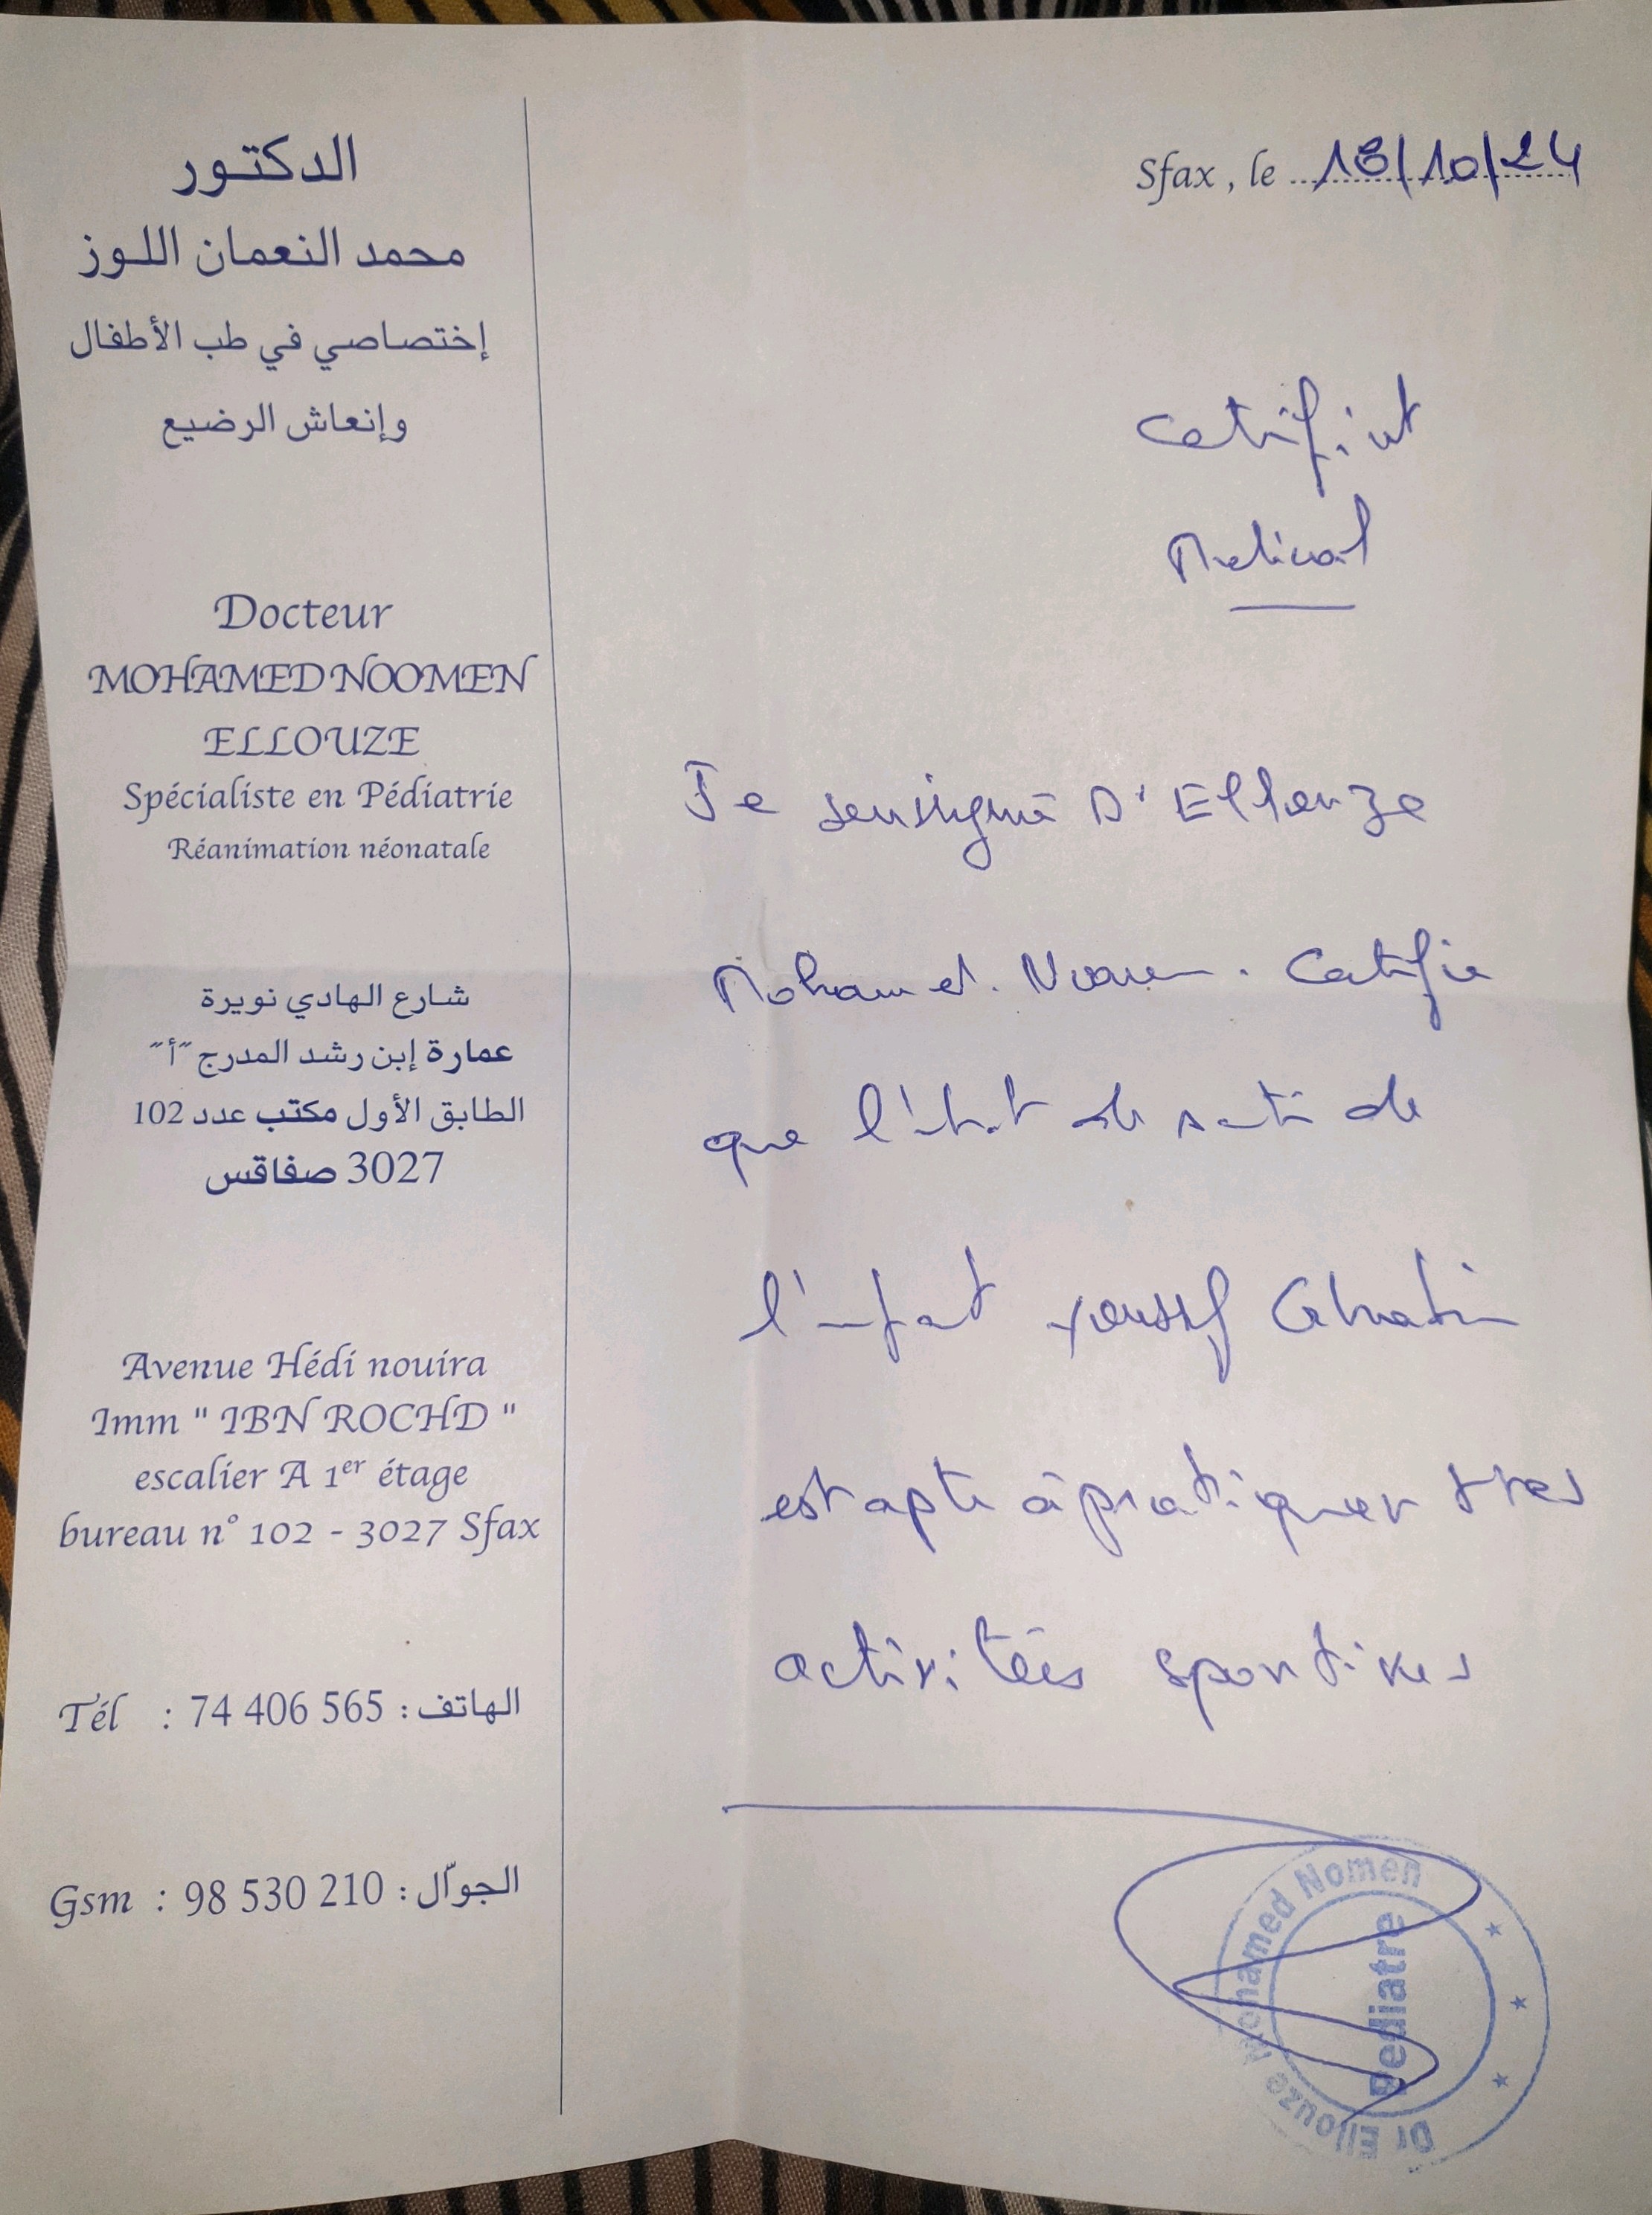 الدكتور
محمد النعمان اللوز
إختصاصي في طب الأطفال
وإنعاش الرضيع
Docteur
MOHAMED NOOMEN
ELLOUZE
Spécialiste en Pédiatrie
Réanimation néonatale
شارع الهادي نويرة
عمارة إبن رشد المدرج "أ"
الطابق الأول مكتب عدد 102
3027 صفاقس
Avenue Hédi nouira
Imm " IBN ROCHD "
escalier A 1er étage
bureau n° 102 - 3027 Sfax
Tél : 74 406 565 : الهاتف
Gsm : 98 530 210 : الجوّال
Sfax, le 18/10/24
Certificat
Medical
Je soussigné Dr Ellouze
Mohamed Noomen. Certifie
que l'état de santé de
l'enfant Youssef
est apte à pratiquer ttes
activités sportives
Dr Ellouze Mohamed Nomen
Pediatre